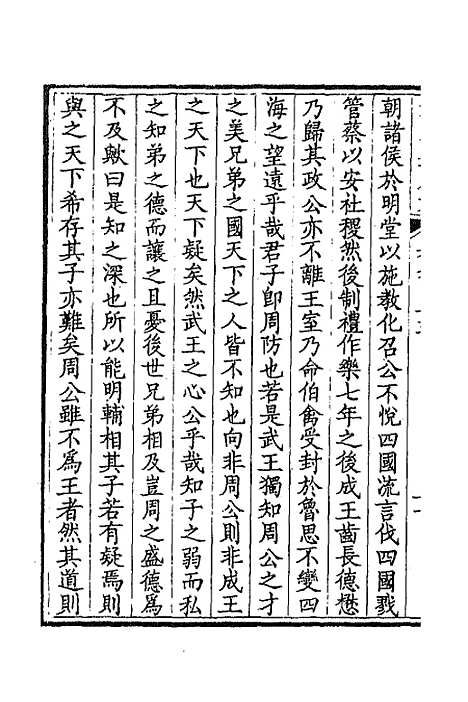 朝諸侯於明堂以施教化召公不悅四國流言伐四國戮
管蔡以安社稷然後制禮作樂七年之後成王齒長德懋
乃歸其政公亦不離王室乃命伯禽受封於魯思不變四
海之望遠乎哉君子卽周防也若是武王獨知周公之才
之美兄弟之國天下之人皆不知也向非周公則非成王
之天下也天下疑矣然武王之心公乎哉知子之弱而私
之知弟之德而讓之且憂後世兄弟相及豈周之盛德爲
不及歟曰是知之深也所以能明輔相其子若有疑焉則
與之天下希存其子亦難矣周公雖不爲王者然其道則